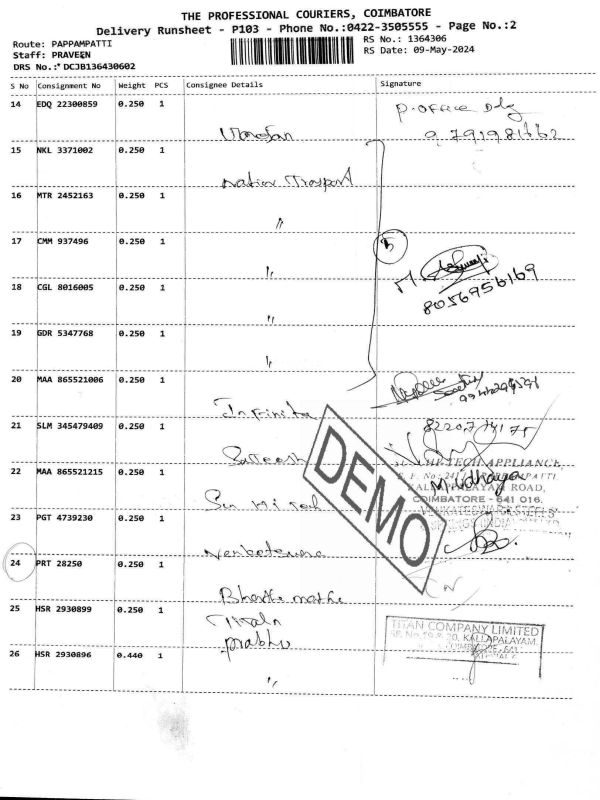 THE PROFESSIONAL COURIERS, COIMBATORE
Delivery Runsheet - P103 - Phone No.:0422-3505555 - Page No.:2
Route: PAPPAMPATTI
RS No.: 1364306
Staff: PRAVEEN
RS Date: 09-May-2024
DRS No.: DCJB136430602
S No Consignment No Weight PCS Consignee Details Signature
14 EDQ 22300859 0.250 1
P.Office Dly
15 NKL 3371002 0.250 1
Nation Trasport
16 MTR 2452163 0.250 1
"
17 CMM 937496 0.250 1
5
"
18 CGL 8016005 0.250 1
8056956169
"
19 GDR 5347768 0.250 1
"
20 MAA 865521006 0.250 1
Infinita
21 SLM 345479409 0.250 1
Sateesh
HI-TECH APPLIANCE,
22 MAA 865521215 0.250 1
M. Udhaya
KALLAPALAYAM ROAD,
COIMBATORE - 641 016.
23 PGT 4739230 0.250 1
VENKATESWARA STEELS
Venkateswara
24 PRT 28250 0.250 1
25 HSR 2930899 0.250 1
Titan
prabhu
TITAN COMPANY LIMITED
KALLAPALAYAM
26 HSR 2930896 0.440 1
"
DEMO